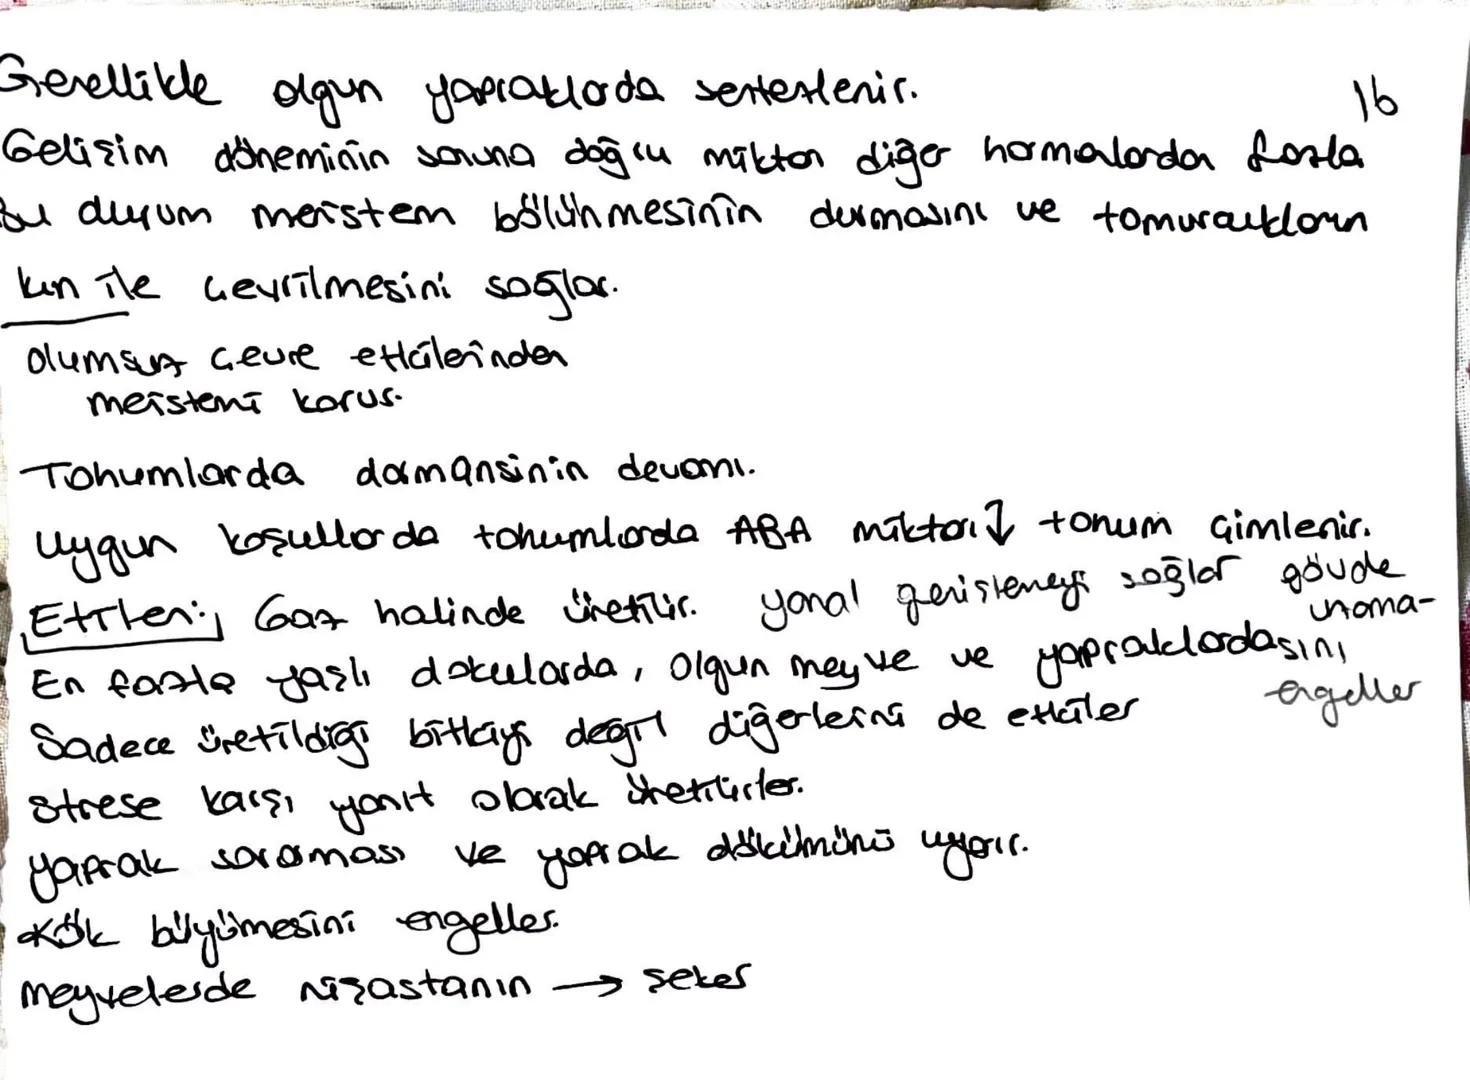 Genellikle olgun yapraklarda sentezlenir.
16
Gelişim döneminin sonuna doğru miktarı diğer hormonlardan fazla
Bu durum meristem bölünmesinin durmasını ve tomurcukların
kın ile çevrilmesini sağlar.
olumsuz çevre etkilerinden
meristemi korur.
Tohumlarda dormansinin devamı.
Uygun koşullarda tohumlarda ABA miktarı ↓ tohum çimlenir.
Etilen: Gaz halinde üretilir. yanal genişlemeyi sağlar gövde
uzama-
En fazla yaşlı dokularda, olgun meyve ve yapraklarda sını
engeller
Sadece üretildiği bitkiyi değil diğerlerini de etkiler
strese karşı yanıt olarak üretilirler.
yaprak sararması ve yaprak dökümünü uyarır.
Kök büyümesini engeller.
meyvelerde nişastanın → şeker